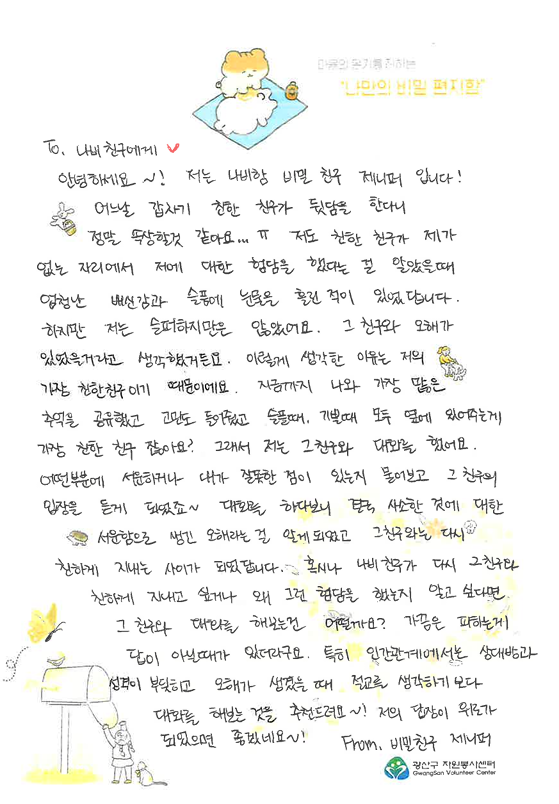 마음의 온기를 전하는
"나만의 비밀 편지함"
To. 나비친구에게
안녕하세요~! 저는 나비함 비밀친구 제니퍼 입니다!
어느날 갑자기 친한 친구가 뒷담을 한다니
정말 속상할것 같아요... ㅠ 저도 친한 친구가 제가
없는 자리에서 저에 대한 험담을 했다는 걸 알았을때
엄청난 배신감과 슬픔에 눈물을 흘린 적이 있었답니다.
하지만 저는 슬퍼하지만은 않았어요. 그 친구와 오해가
있었을거라고 생각했거든요. 이렇게 생각한 이유는 저의
가장 친한친구이기 때문이에요. 지금까지 나와 가장 많은
추억을 공유했고 고민도 들어주었고 슬플때, 기쁠때 모두 옆에 있어주는게
가장 친한 친구 잖아요? 그래서 저는 그친구와 대화를 했어요.
어떤부분에 서운하거나 내가 잘못한 점이 있는지 물어보고 그 친구의
입장을 듣게 되었죠~ 대화를 하다보니 사소한 것에 대한
서운함으로 생긴 오해라는 걸 알게 되었고 그친구와는 다시
친하게 지내는 사이가 되었답니다. 혹시나 나비친구가 다시 그친구와
친하게 지내고 싶거나 왜 그런 험담을 했는지 알고 싶다면
그 친구와 대화를 해보는건 어떨까요? 가끔은 피하는게
답이 아닐때가 있더라구요. 특히 인간관계에서는 상대방과
성격이 부딪히고 오해가 생겼을 때 절교를 생각하기 보다
대화를 해보는 것을 추천드려요~! 저의 답장이 위로가
되었으면 좋겠네요~! From. 비밀친구 제니퍼
광산구 자원봉사센터
GwangSan Volunteer Center